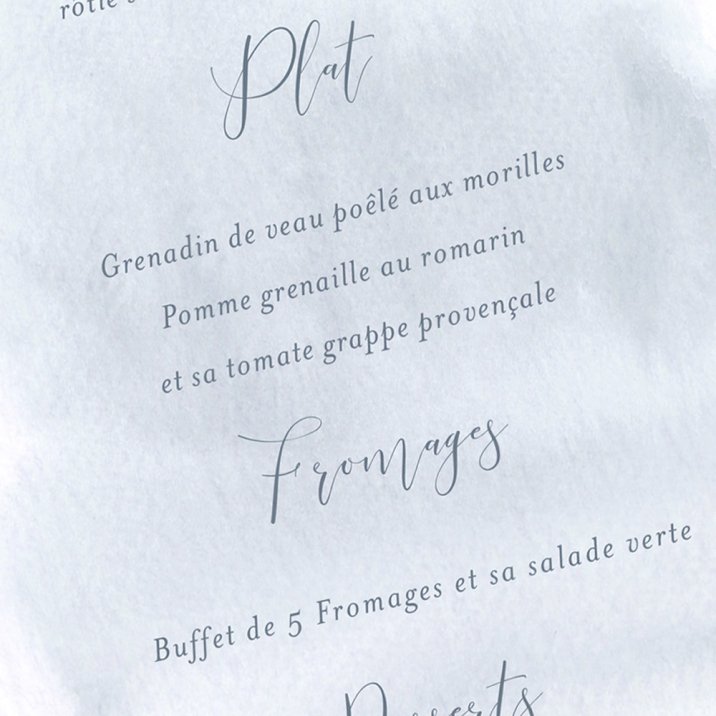 Plat
Grenadin de veau poêlé aux morilles
Pomme grenaille au romarin
et sa tomate grappe provençale
Fromages
Buffet de 5 Fromages et sa salade verte
Desserts